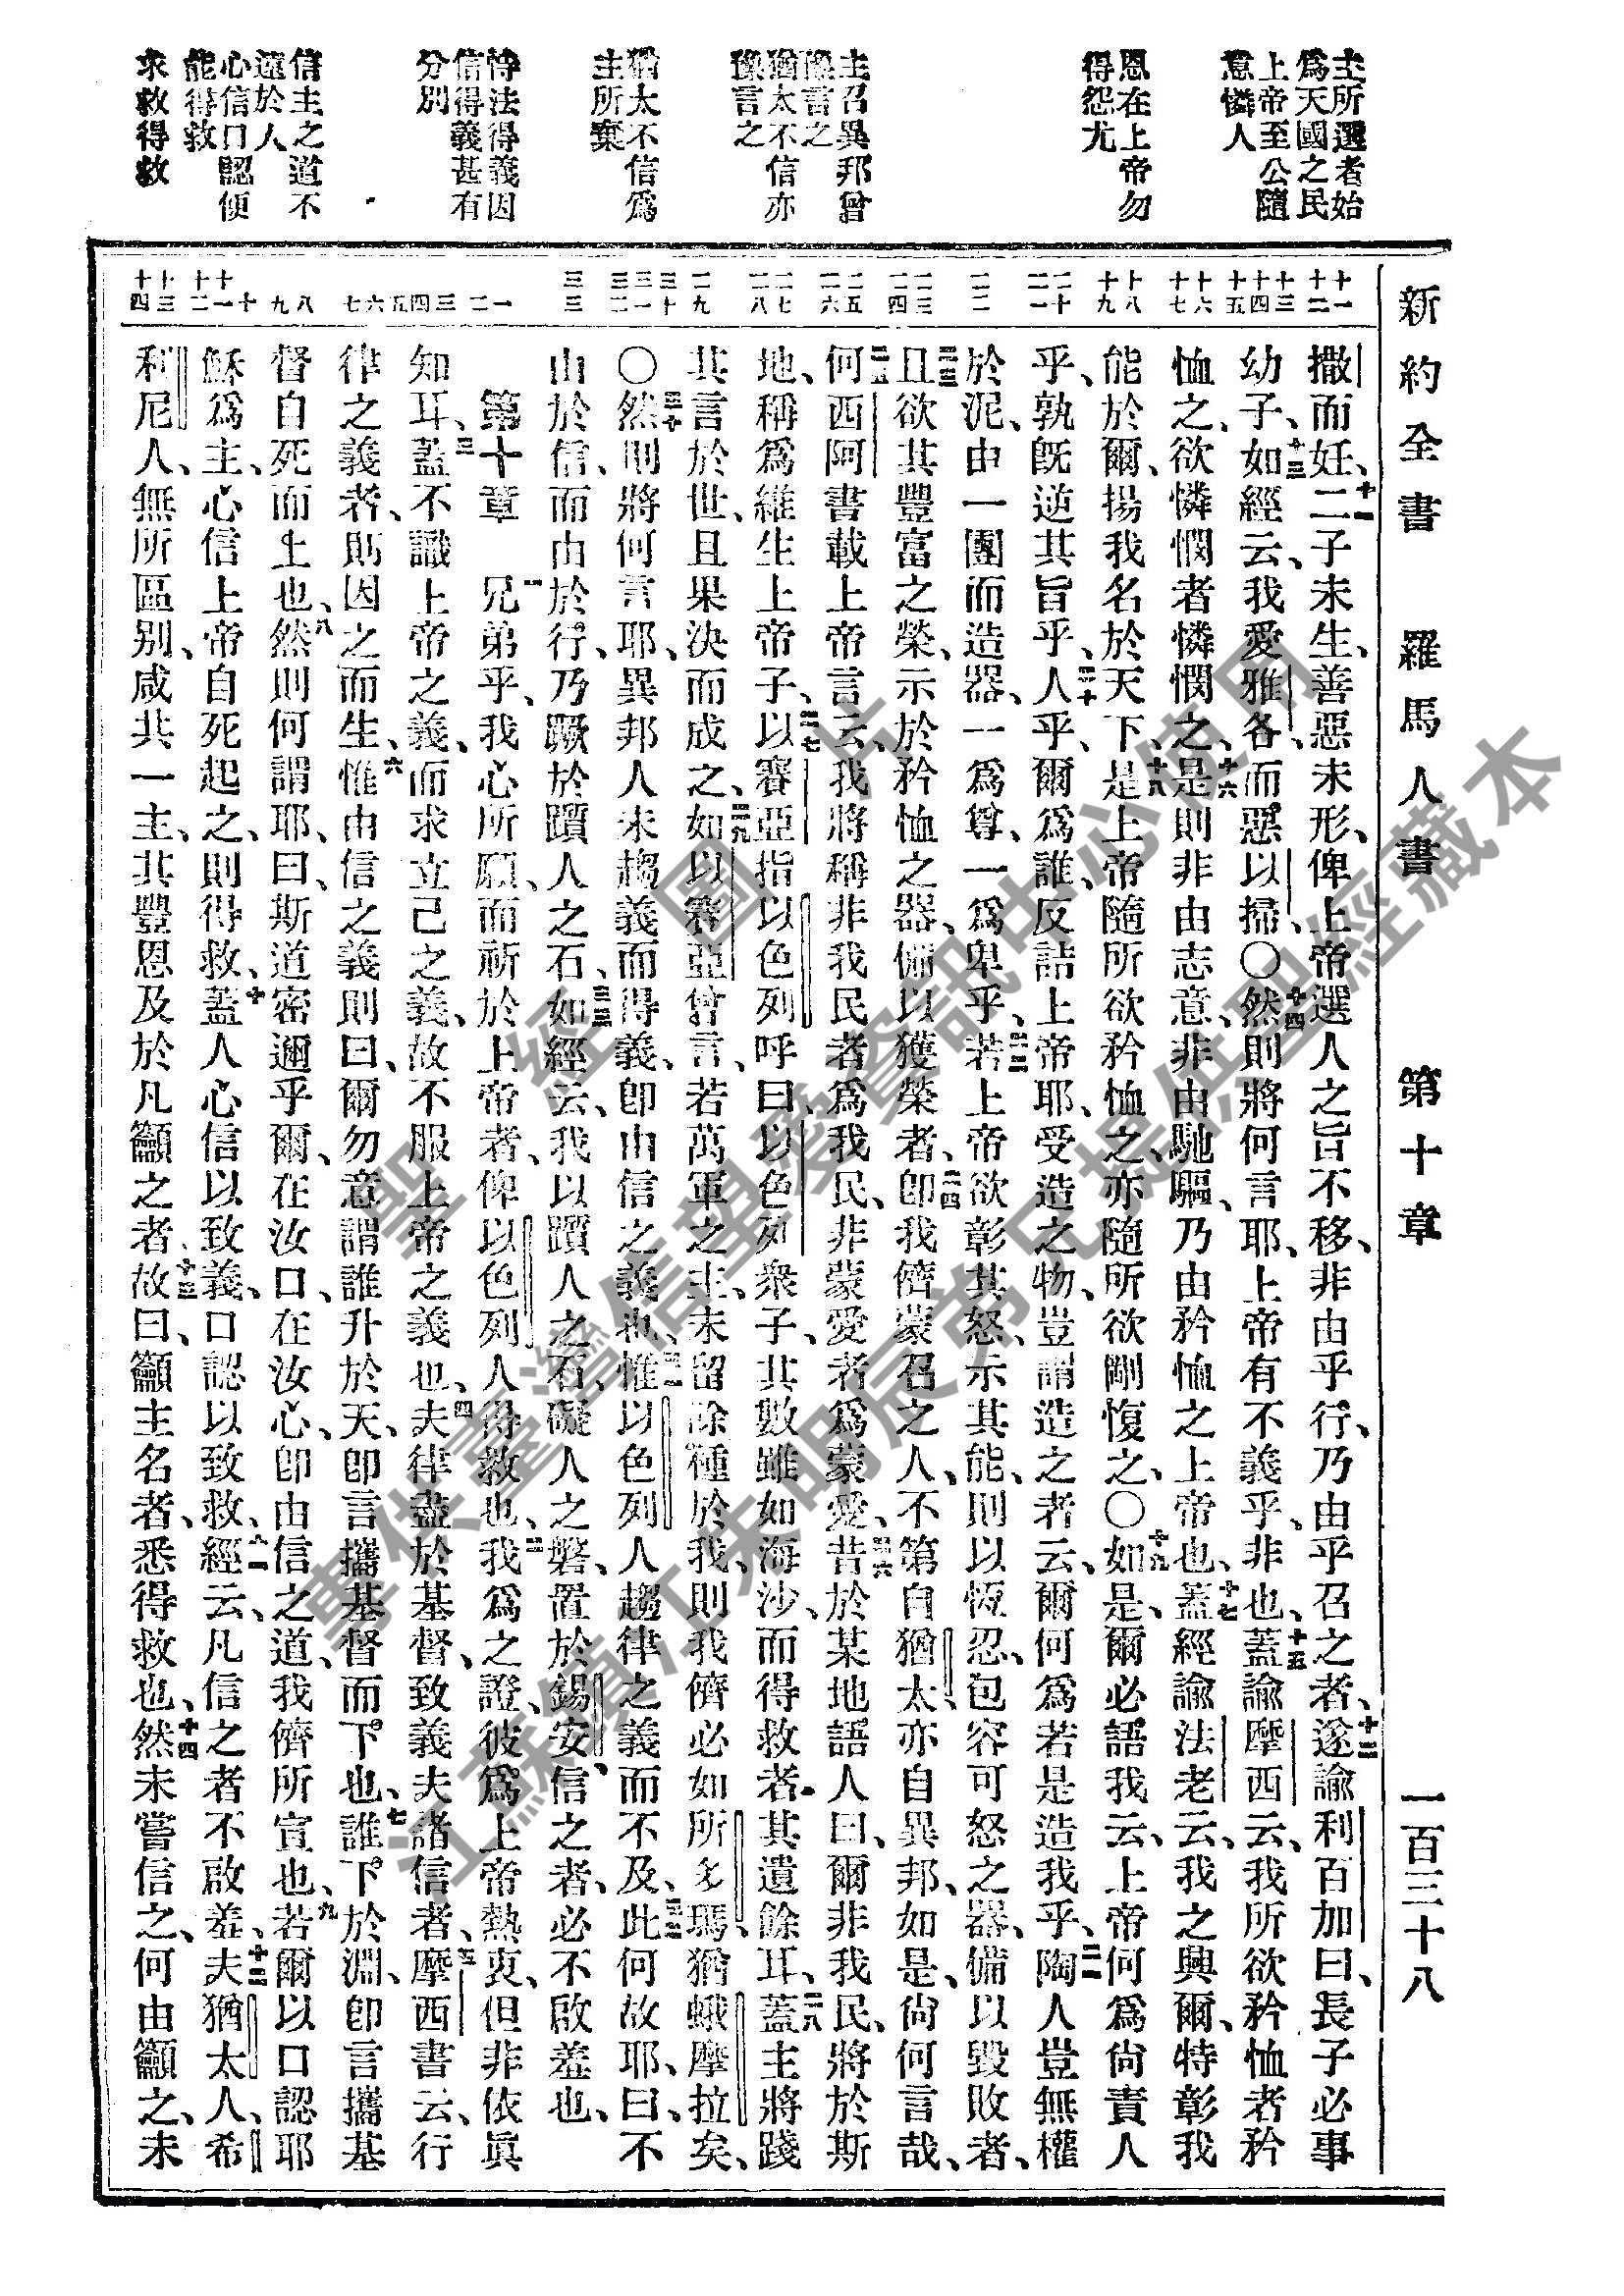 新約全書　羅馬人書　第十章　一百三十八
主所選者始
爲天國之民
上帝至公隨
意憐人
恩在上帝勿
得怨尤
主召異邦曾
豫言之
猶太不信亦
豫言之
猶太不信爲
主所棄
恃法得義因
信得義甚有
分別
信主之道不
遠於人
心信口認便
能得救
求救得救
十一　十二
十三　十四　十五
十六　十七
十八　十九
二十　二一
二二
二三　二四
二五　二六
二七　二八
二九
三十　三一　三二
三三
一　二
三　四　五
六　七
八　九
十　十一　十二
十三　十四
撒而妊、十一二子未生、善惡未形、俾上帝選人之旨不移、非由乎行、乃由乎召之者、十二遂諭利百加曰、長子必事
幼子、十三如經云、我愛雅各、而惡以掃、〇十四然則將何言耶、上帝有不義乎、非也、十五蓋諭摩西云、我所欲矜恤者矜
恤之、欲憐憫者憐憫之、十六是則非由志意、非由馳驅、乃由矜恤之上帝也、十七蓋經諭法老云、我之興爾、特彰我
能於爾、揚我名於天下、十八是上帝隨所欲矜恤之、亦隨所欲剛愎之、〇十九如是、爾必語我云、上帝何爲尙責人
乎、孰旣逆其旨乎、二十人乎、爾爲誰、反詰上帝耶、受造之物、豈謂造之者云、爾何爲若是造我乎、二一陶人豈無權
於泥、由一團而造器、一爲尊、一爲卑乎、二二若上帝欲彰其怒、示其能、則以恆忍、包容可怒之器、備以毀敗者、
二三且欲其豐富之榮、示於矜恤之器、備以獲榮者、二四卽我儕蒙召之人、不第自猶太、亦自異邦、如是、尙何言哉、
二五何西阿書載上帝言云、我將稱非我民者爲我民、非蒙愛者爲蒙愛、二六昔於某地語人曰、爾非我民、將於斯
地、稱爲維生上帝子、二七以賽亞指以色列呼曰、以色列衆子、其數雖如海沙、而得救者、其遺餘耳、二八蓋主將踐
其言於世、且果決而成之、二九如以賽亞曾言、若萬軍之主、未留餘種於我、則我儕必如所多瑪、猶蛾摩拉矣、
〇三十然則將何言耶、異邦人未趨義而得義、卽由信之義也、三一惟以色列人趨律之義而不及、三二此何故耶、曰、不
由於信、而由於行、乃蹶於躓人之石、三三如經云、我以躓人之石、礙人之磐、置於錫安、信之者、必不啟羞也、
第十章　一兄弟乎、我心所願、而祈於上帝者、俾以色列人得救也、二我爲之證、彼爲上帝熱衷、但非依眞
知耳、三蓋不識上帝之義、而求立己之義、故不服上帝之義也、四夫律盡於基督、致義夫諸信者、五摩西書云、行
律之義者、則因之而生、六惟由信之義則曰、爾勿意謂誰升於天、卽言攜基督而下也、七誰下於淵、卽言攜基
督自死而上也、八然則何謂耶、曰、斯道密邇乎爾、在汝口、在汝心、卽由信之道、我儕所宣也、九若爾以口認耶
穌爲主、心信上帝自死起之、則得救、十蓋人心信以致義、口認以致救、十一經云、凡信之者不啟羞、十二夫猶太人、希
利尼人、無所區別、咸共一主、其豐恩及於凡籲之者、十三故曰、籲主名者、悉得救也、十四然未嘗信之、何由籲之、未
聖經圖片
專供臺灣信望愛資訊中心使用
江蘇鎮江朱明辰弟兄提供聖經藏本